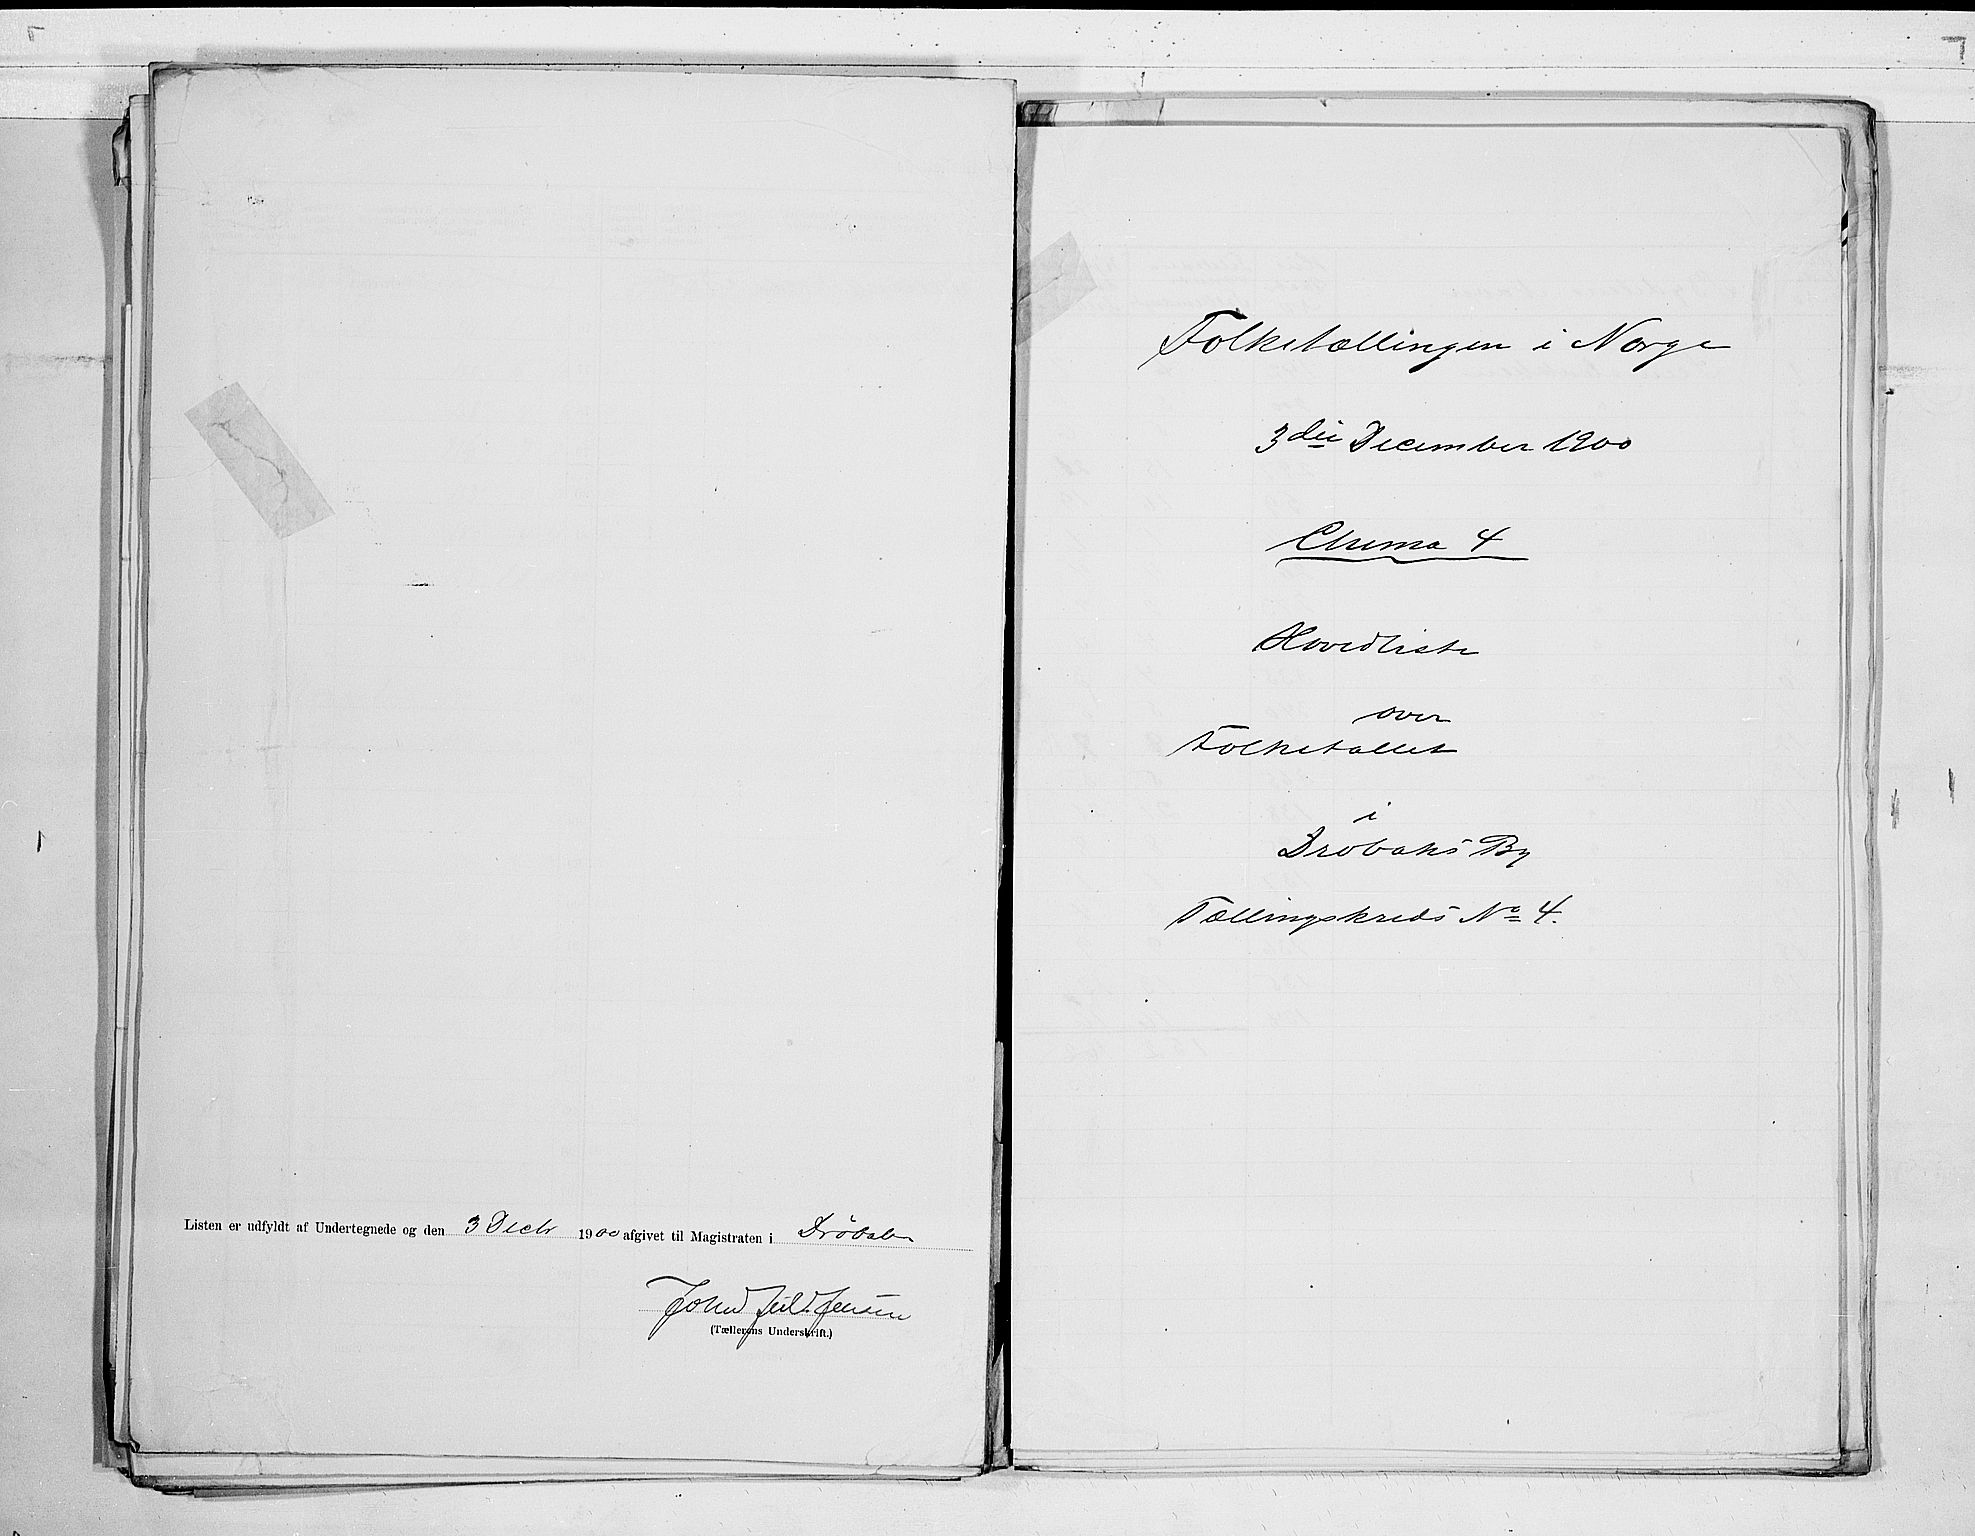 Listen er udfyldt af Undertegnede og den 3 Decbr 1900 afgivet til Magistraten i Drøbak
Jensen
(Tællerens Underskrift.)
Folketællingen i Norge
3die December 1900
Chema 4
Hovedliste
over
Folketallet
i
Drøbaks By
Tællingskreds No 4.